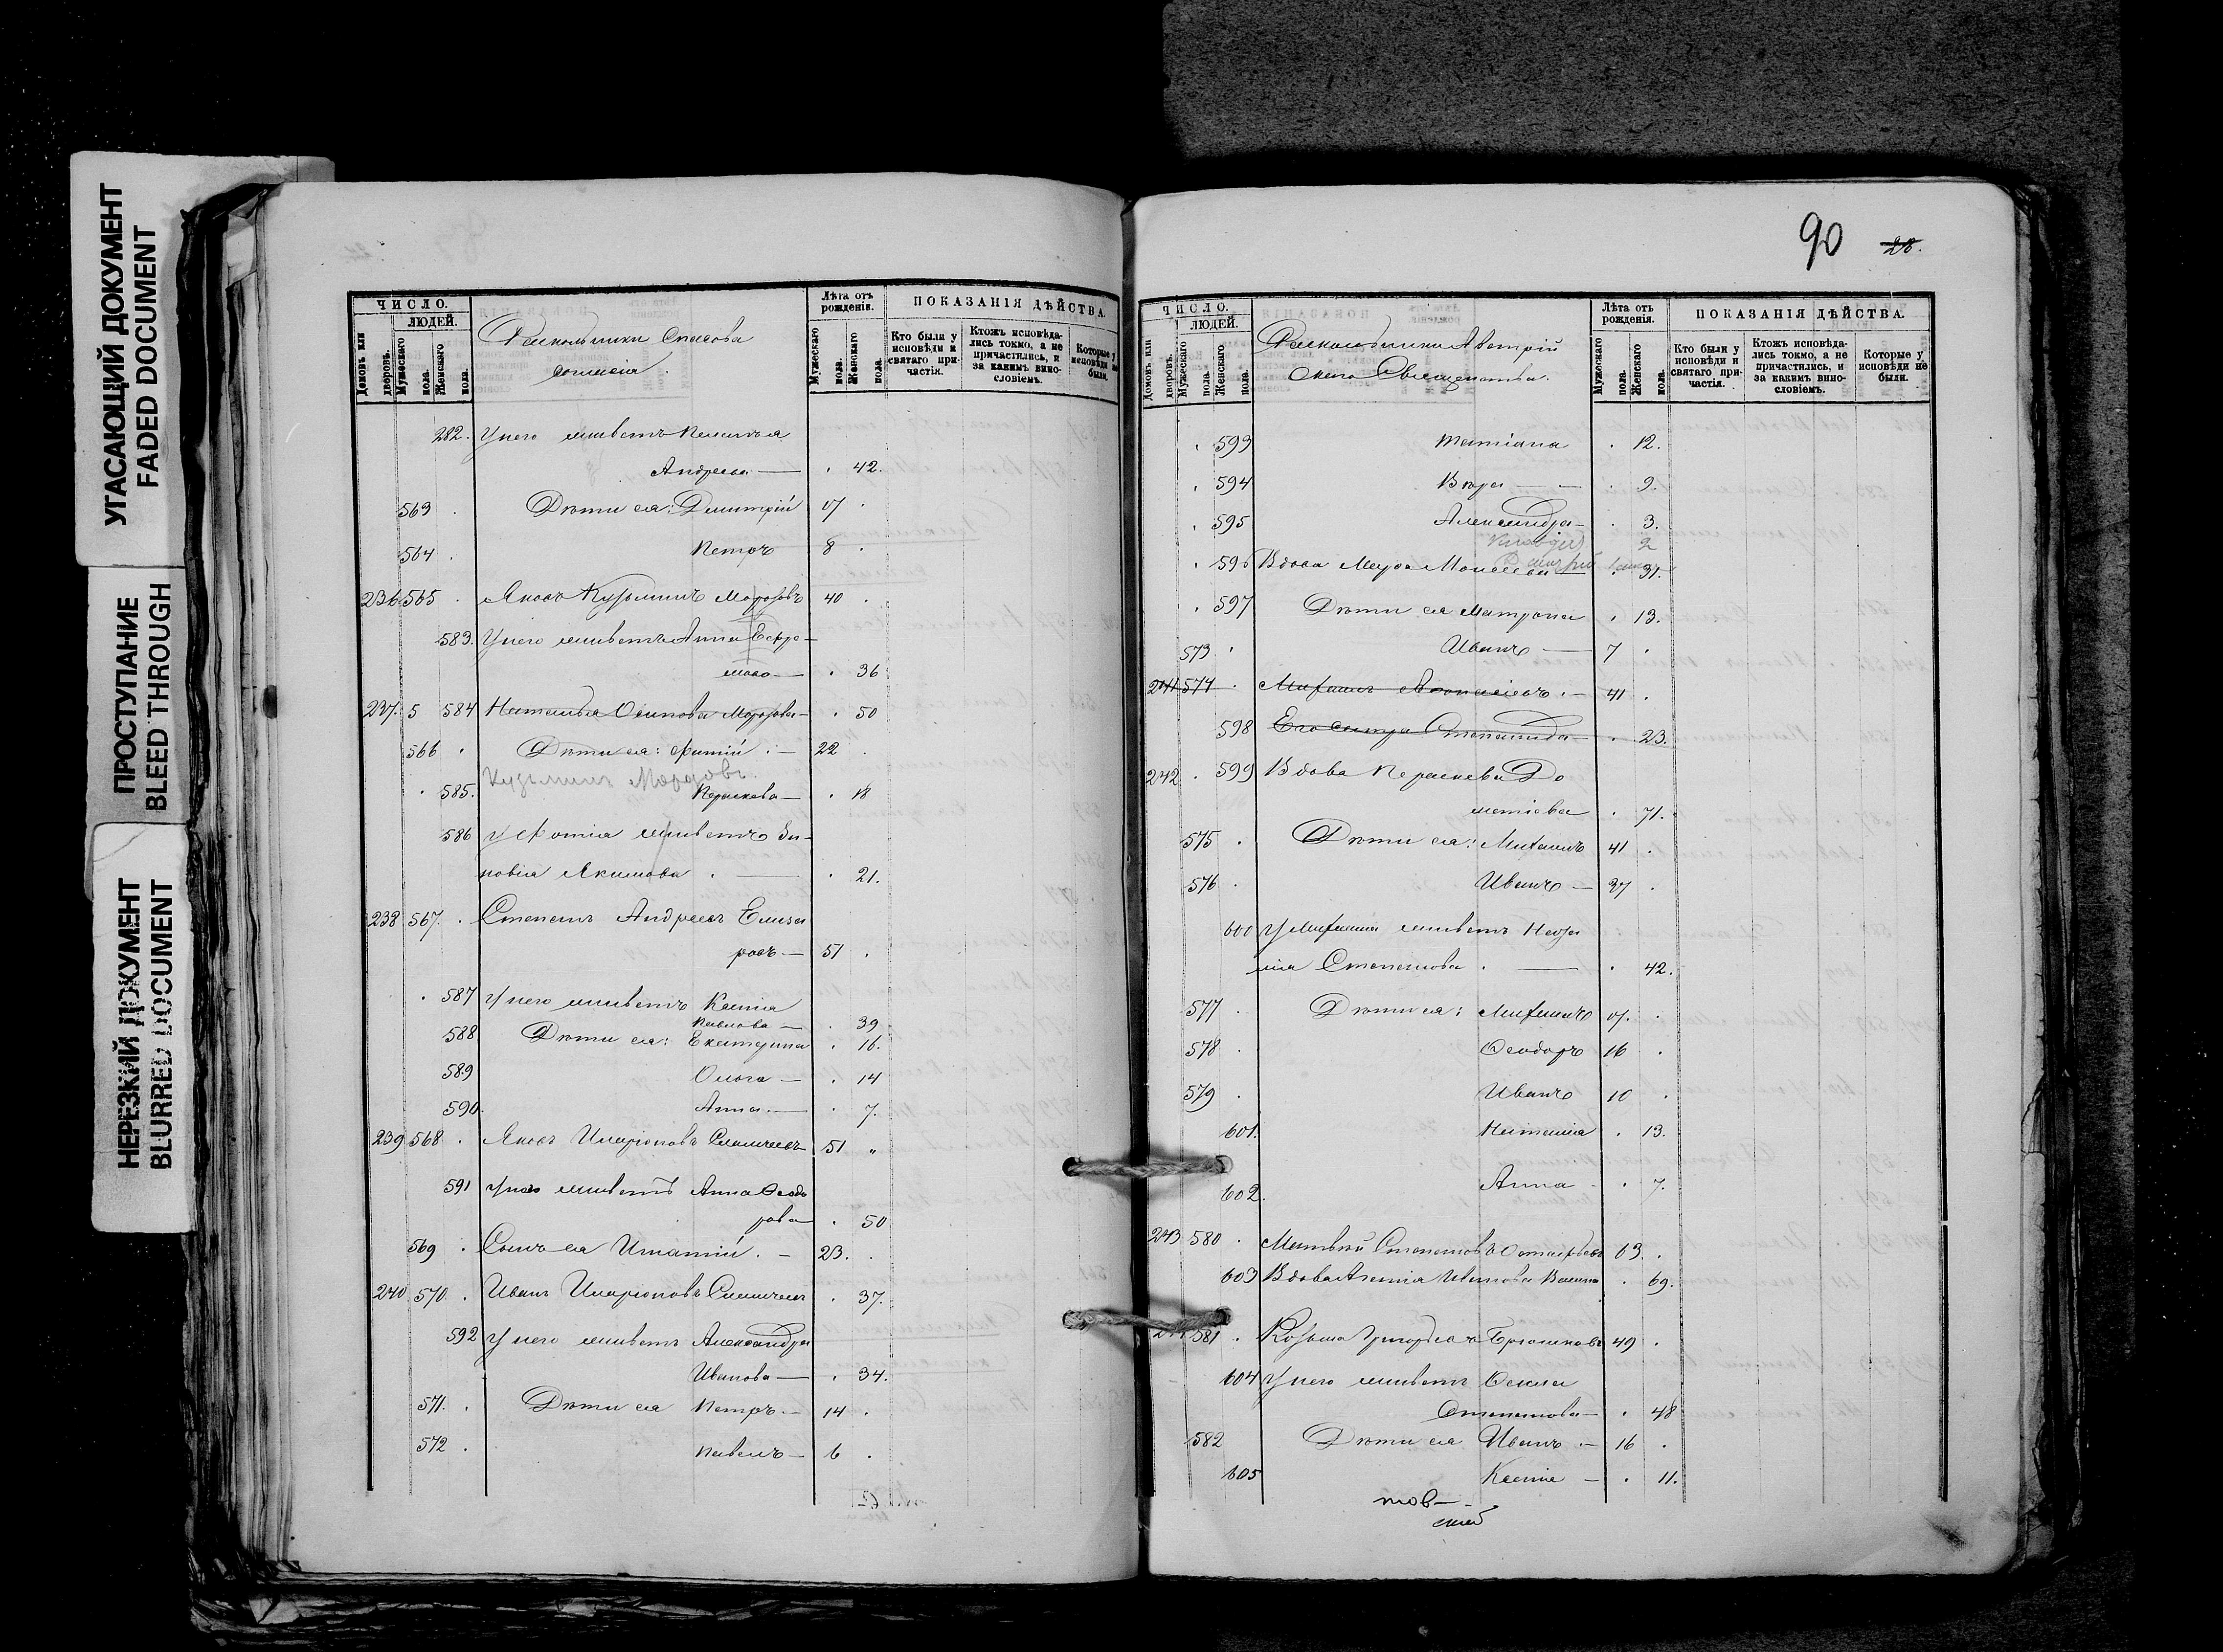 УГАСАЮЩИЙ ДОКУМЕНТ
FADED DOCUMENT
ПРОСТУПАНИЕ
BLEED THROUGH
НЕРЕЗКИЙ ДОКУМЕНТ
BLURRED DOCUMENT
ЧИСЛО.
ЛЮДЕЙ.
Домовъ или дворовъ.
Мужескаго пола.
Женскаго пола.
Раскольники Спасова
согласія.
Лѣта отъ рожденія.
Мужескаго пола.
Женскаго пола.
ПОКАЗАНІЯ ДѢЙСТВА.
Кто были у исповѣди и святаго причастія.
Ктожъ исповѣдались токмо, а не причастились, и за какимъ винословіемъ.
Которые у исповѣди не были.
282. У него живетъ Пелагея
Андреева — 42.
563 Дѣти ея: Димитрій 17
564 Петръ 8
236 565 Яковъ Кузьминъ Морозовъ 40
583. У него живетъ Анна Ефре-
мова — 36
237. 5 584 Наталья Осипова Морозова — 50
566 Дѣти ея: Фотій — 22
Кузьминъ Морозовъ
585. Параскева — 18
586 У Фотія живетъ Зи-
новія Якимова — 21.
238 567. Степанъ Андреевъ Елиза
ровъ — 51
587 У него живетъ Ксенія
Павлова — 39
588 Дѣти ея: Екатерина 16.
589 Ольга — 14
590. Анна — 7.
239 568 Яковъ Иларіоновъ 51 "
591 У него живетъ Анна Ѳеодо
рова 50
569 Сынъ ея Игнатій. — 23.
240 570. Иванъ Иларіоновъ 37.
592 У него живетъ Александра
Иванова — 34.
571. Дѣти ея Петръ — 14
572 Павелъ — 6
90 28.
ЧИСЛО.
ЛЮДЕЙ.
Домовъ или дворовъ.
Мужескаго пола.
Женскаго пола.
Раскольники Австрій
скаго Священства.
Лѣта отъ рожденія.
Мужескаго пола.
Женскаго пола.
ПОКАЗАНІЯ ДѢЙСТВА.
Кто были у исповѣди и святаго причастія.
Ктожъ исповѣдались токмо, а не причастились, и за какимъ винословіемъ.
Которые у исповѣди не были.
593 Татіана 12.
594 Вѣра — 9.
595 Александра — 3.
Клавдія 2
596 Вдова Мавра Моисеева — 37.
597 Дѣти ея Матрона 13.
573 Иванъ — 7
241 574 Михаилъ Аѳанасіевъ. — 41
598 Его сестра Степанида 23.
242 599 Вдова Параскева До
метіева 71.
575 Дѣти ея: Михаилъ 41
576 Иванъ — 37
600 У Михаила живетъ Неони
ла Степанова — 42.
577 Дѣти ея: Михаилъ 17.
578 Ѳеодоръ 16
579 Иванъ 10
601. Наталія 13.
602. Анна 7.
243 580 Матвѣй Степановъ 63.
603 Вдова Агнія Иванова 69.
244 581 Козьма Григорьевъ 49
604 У него живетъ Ѳекла
Степанова — 48
582 Дѣти ея Иванъ — 16
605 Ксенія — 11.